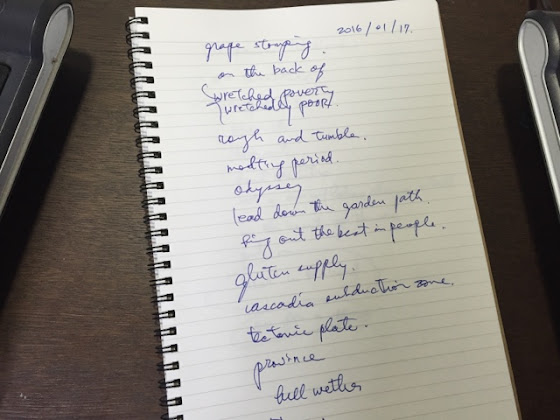 2016/01/17.
grape stomping.
on the back of
wretched poverty
wretchedly poor.
rough and tumble.
molting period.
odyssey
lead down the garden path.
out the best in people.
gluten supply.
cascadia subduction zone.
tectonic plate.
province
bell wether